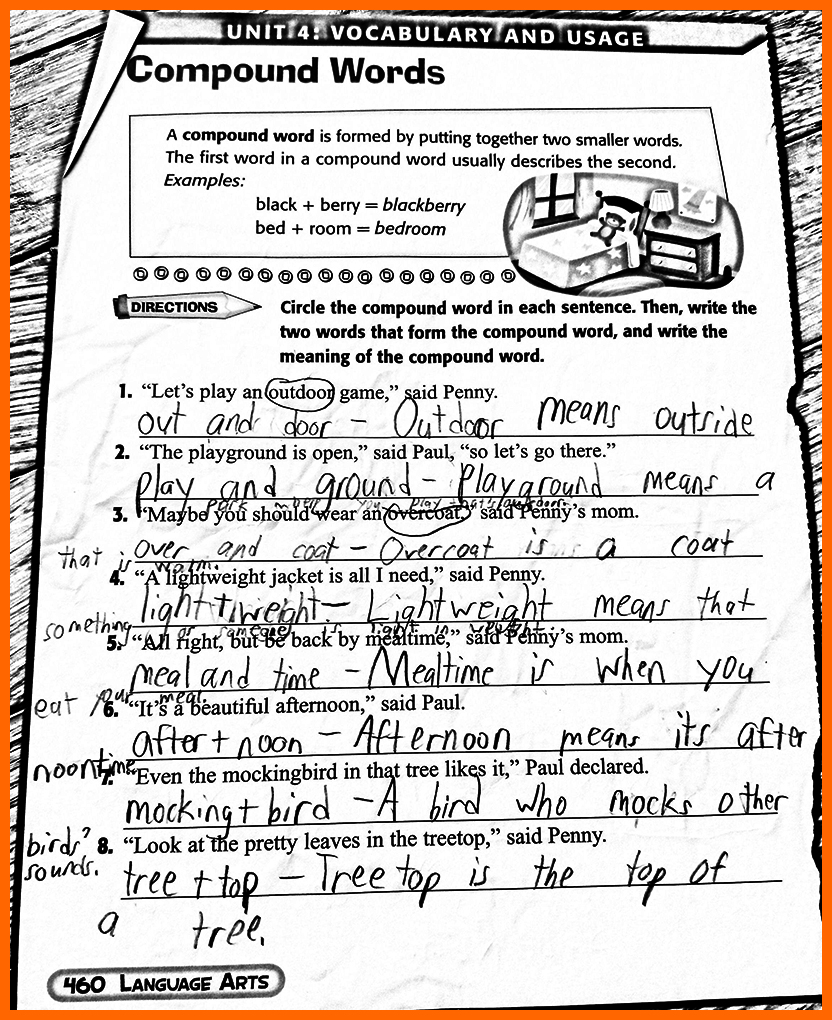 UNIT 4: VOCABULARY AND USAGE
Compound Words
A compound word is formed by putting together two smaller words.
The first word in a compound word usually describes the second.
Examples:
black + berry = blackberry
bed + room = bedroom
DIRECTIONS
Circle the compound word in each sentence. Then, write the
two words that form the compound word, and write the
meaning of the compound word.
1. “Let’s play an outdoor game,” said Penny.
out and door - Outdoor means outside
2. “The playground is open,” said Paul, “so let’s go there.”
play and ground - Playground means a
park you play that's
3. “Maybe you should wear an overcoat,” said Penny’s mom.
over and coat - Overcoat is a coat
that is warm.
4. “A lightweight jacket is all I need,” said Penny.
light + weight - Lightweight means that
something or someone is light in weight.
5. “All right, but be back by mealtime,” said Penny’s mom.
meal and time - Mealtime is when you
eat your meal.
6. “It’s a beautiful afternoon,” said Paul.
after + noon - Afternoon means its after
noontime
7. “Even the mockingbird in that tree likes it,” Paul declared.
mocking + bird - A bird who mocks other
birds' sounds.
8. “Look at the pretty leaves in the treetop,” said Penny.
tree + top - Treetop is the top of
a tree.
460 LANGUAGE ARTS